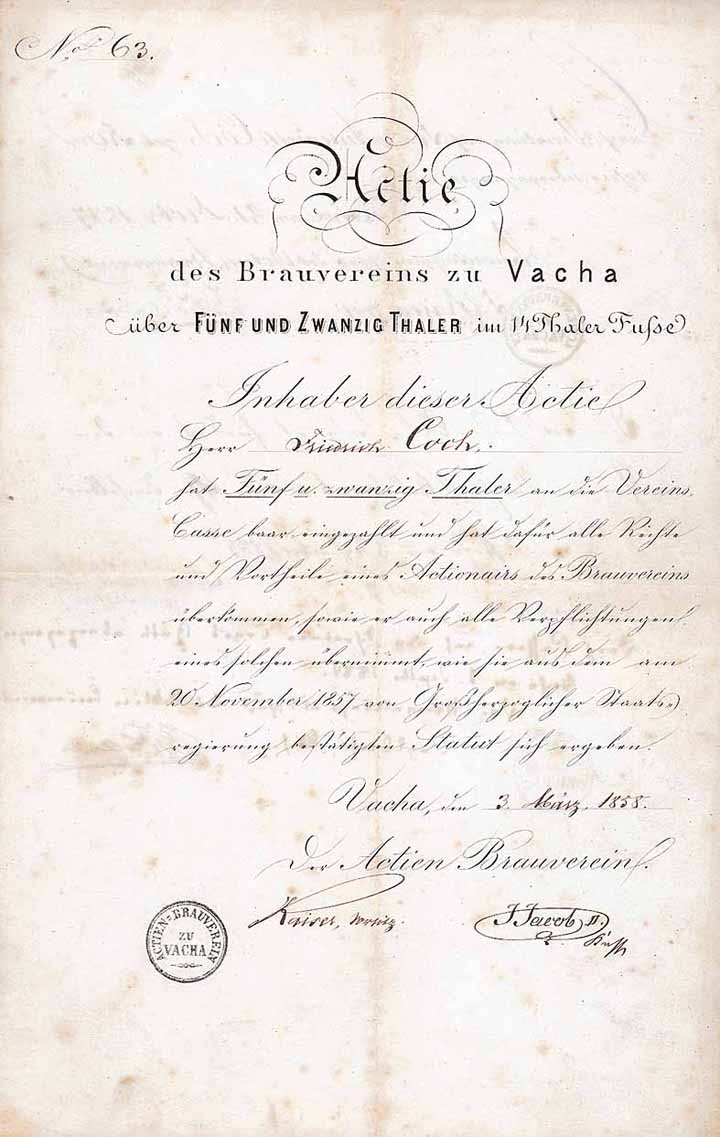 No. 63.
Actie
des Brauvereins zu Vacha
über FÜNF UND ZWANZIG THALER im 14 Thaler Fuſse
Inhaber dieser Actie
Herr Friedrich Coch.
hat Fünf u. zwanzig Thaler an die Vereins
Casse baar eingezahlt und hat dafür alle Rechte
und Vortheile eines Actionairs des Brauvereins
überkommen, sowie er auch alle Verpflichtungen
eines solchen übernimmt, wie sie aus dem am
20 November 1857 von Großherzoglicher Staats-
regierung bestätigten Statut sich ergeben.
Vacha, den 3. März 1858.
Der Actien Brauverein.
Kaiser, J. Jacob II.
ACTIEN-BRAUVEREIN
ZU
VACHA